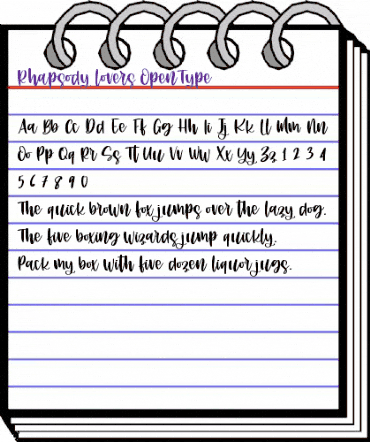 Rhapsody lovers OpenType
Aa Bb Cc Dd Ee Ff Gg Hh Ii Jj Kk Ll Mm Nn
Oo Pp Qq Rr Ss Tt Uu Vv Ww Xx Yy Zz 1 2 3 4
5 6 7 8 9 0
The quick brown fox jumps over the lazy dog.
The five boxing wizards jump quickly.
Pack my box with five dozen liquor jugs.